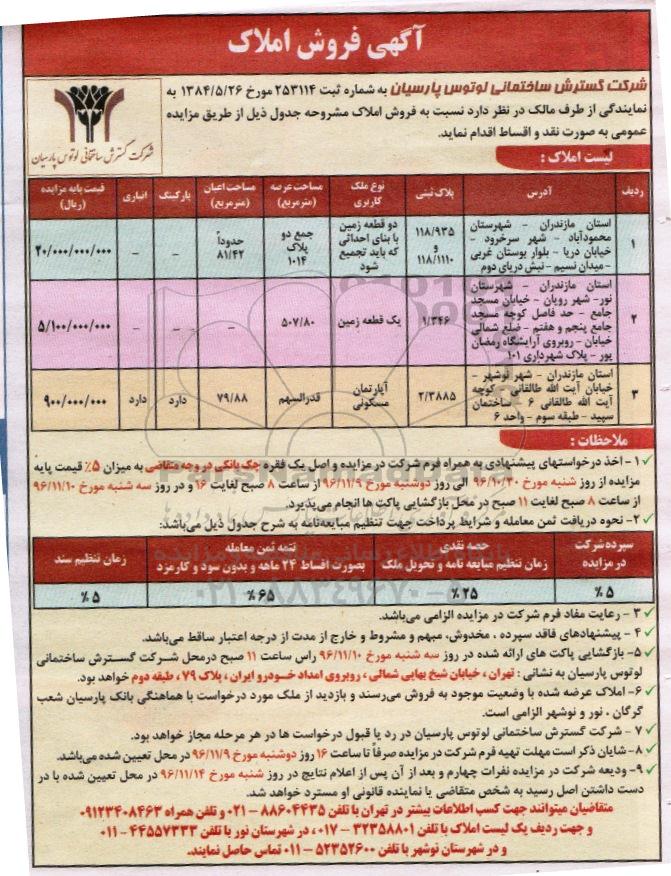 آگهی فروش املاک
شرکت گسترش ساختمانی لوتوس پارسیان به شماره ثبت ۲۵۳۱۱۴ مورخ ۱۳۸۴/۵/۲۶ به
نمایندگی از طرف مالک در نظر دارد نسبت به فروش املاک مشروحه جدول ذیل از طریق مزایده
عمومی به صورت نقد و اقساط اقدام نماید.
شرکت گسترش ساختمانی لوتوس پارسیان
لیست املاک :
ردیف | آدرس | پلاک ثبتی | نوع ملک کاربری | مساحت عرصه (مترمربع) | مساحت اعیان (مترمربع) | پارکینگ | انباری | قیمت پایه مزایده (ریال)
۱ | استان مازندران - شهرستان محمودآباد - شهر سرخرود - خیابان دریا - بلوار بوستان غربی - میدان نسیم - نبش دریای دوم | ۱۱۸/۹۳۵ و ۱۱۸/۱۱۱۰ | دو قطعه زمین با بنای احداثی که باید تجمیع شود | جمع دو پلاک ۱۰۱۴ | حدوداً ۸۱/۴۲ | - | - | ۲۰/۰۰۰/۰۰۰/۰۰۰
۲ | استان مازندران - شهرستان نور - شهر رویان - خیابان مسجد جامع - حد فاصل کوچه مسجد جامع پنجم و هفتم - ضلع شمالی خیابان - روبروی آرایشگاه رمضان پور - پلاک شهرداری ۱۰۱ | ۱/۳۴۶ | یک قطعه زمین | ۵۰۷/۸۰ | - | - | - | ۵/۱۰۰/۰۰۰/۰۰۰
۳ | استان مازندران - شهر نوشهر - خیابان آیت الله طالقانی - کوچه آیت الله طالقانی ۶ - ساختمان سپید - طبقه سوم - واحد ۶ | ۲/۳۸۸۵ | آپارتمان مسکونی | قدرالسهم | ۷۹/۸۸ | دارد | دارد | ۹۰۰/۰۰۰/۰۰۰
ملاحظات :
۱- اخذ درخواستهای پیشنهادی به همراه فرم شرکت در مزایده و اصل یک فقره چک بانکی در وجه متقاضی به میزان ۵٪ قیمت پایه
مزایده از روز شنبه مورخ ۹۶/۱۰/۳۰ الی روز دوشنبه مورخ ۹۶/۱۱/۹ از ساعت ۸ صبح لغایت ۱۶ و در روز سه شنبه مورخ ۹۶/۱۱/۱۰
از ساعت ۸ صبح لغایت ۱۱ صبح در محل بازگشایی پاکت ها انجام می‌پذیرد.
۲- نحوه دریافت ثمن معامله و شرایط پرداخت جهت تنظیم مبایعه‌نامه به شرح جدول ذیل می‌باشد:
سپرده شرکت در مزایده | حصه نقدی زمان تنظیم مبایعه نامه و تحویل ملک | تتمه ثمن معامله بصورت اقساط ۲۴ ماهه و بدون سود و کارمزد | زمان تنظیم سند
۵٪ | ۲۵٪ | ۶۵٪ | ۵٪
۳- رعایت مفاد فرم شرکت در مزایده الزامی می‌باشد.
۴- پیشنهادهای فاقد سپرده ، مخدوش، مبهم و مشروط و خارج از مدت از درجه اعتبار ساقط می‌باشد.
۵- بازگشایی پاکت های ارائه شده در روز سه شنبه مورخ ۹۶/۱۱/۱۰ راس ساعت ۱۱ صبح درمحل شرکت گسترش ساختمانی
لوتوس پارسیان به نشانی : تهران ، خیابان شیخ بهایی شمالی ، روبروی امداد خودرو ایران ، پلاک ۷۹ ، طبقه دوم خواهد بود.
۶- املاک عرضه شده با وضعیت موجود به فروش می‌رسند و بازدید از ملک مورد درخواست با هماهنگی بانک پارسیان شعب
گرگان ، نور و نوشهر الزامی است.
۷- شرکت گسترش ساختمانی لوتوس پارسیان در رد یا قبول درخواست ها در هر مرحله مجاز خواهد بود.
۸- شایان ذکر است مهلت تهیه فرم شرکت در مزایده صرفاً تا ساعت ۱۶ روز دوشنبه مورخ ۹۶/۱۱/۹ در محل تعیین شده می‌باشد.
۹- ودیعه شرکت در مزایده نفرات چهارم و بعد از آن پس از اعلام نتایج در روز شنبه مورخ ۹۶/۱۱/۱۴ در محل تعیین شده با در
دست داشتن اصل رسید به شخص متقاضی یا نماینده قانونی او مسترد خواهد شد.
متقاضیان میتوانند جهت کسب اطلاعات بیشتر در تهران با تلفن ۸۸۶۰۴۴۳۵ - ۰۲۱ و تلفن همراه ۰۹۱۲۳۴۰۸۴۶۳
و جهت ردیف یک لیست املاک با تلفن ۳۲۳۵۸۸۰۱ - ۰۱۷ ، در شهرستان نور با تلفن ۴۴۵۵۷۳۳۳ - ۰۱۱
و در شهرستان نوشهر با تلفن ۵۲۳۵۲۶۰۰ - ۰۱۱ تماس حاصل نمایند.